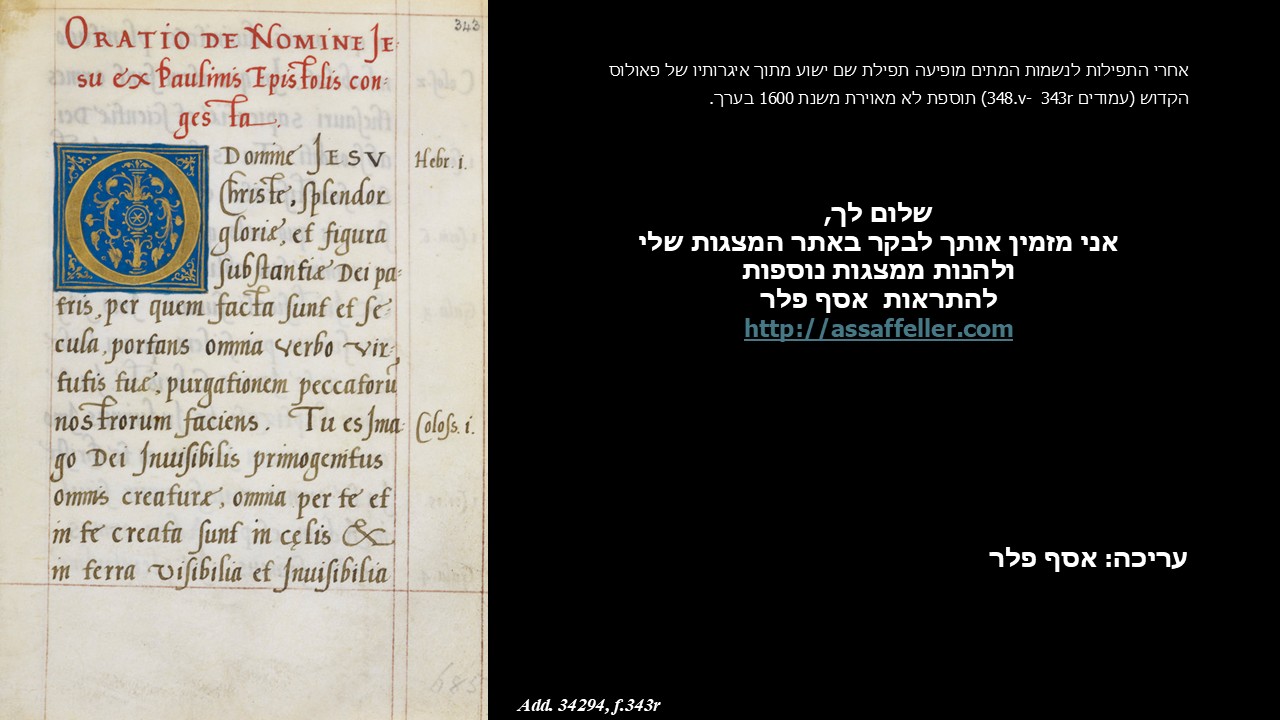 343
ORATIO DE NOMINE JE-
su & ex Paulinis Epistolis con-
gesta.
O Domine JESV
Christe, splendor
gloriæ, et figura
substantiæ Dei pa-
tris, per quem facta sunt et se-
cula, portans omnia verbo vir-
tutis tuæ, purgationem peccatorũ
nostrorum faciens. Tu es Jma-
go Dei Jnuisibilis primogenitus
omnis creaturæ, omnia per te et
in te creata sunt in cęlis &
in terra visibilia et Jnuisibilia
Hebr. i.
Coloss. i.
אחרי התפילות לנשמות המתים מופיעה תפילת שם ישוע מתוך איגרותיו של פאולוס
הקדוש (עמודים 343r -348.v) תוספת לא מאוירת משנת 1600 בערך.
שלום לך,
אני מזמין אותך לבקר באתר המצגות שלי
ולהנות ממצגות נוספות
להתראות אסף פלר
http://assaffeller.com
עריכה: אסף פלר
Add. 34294, f.343r